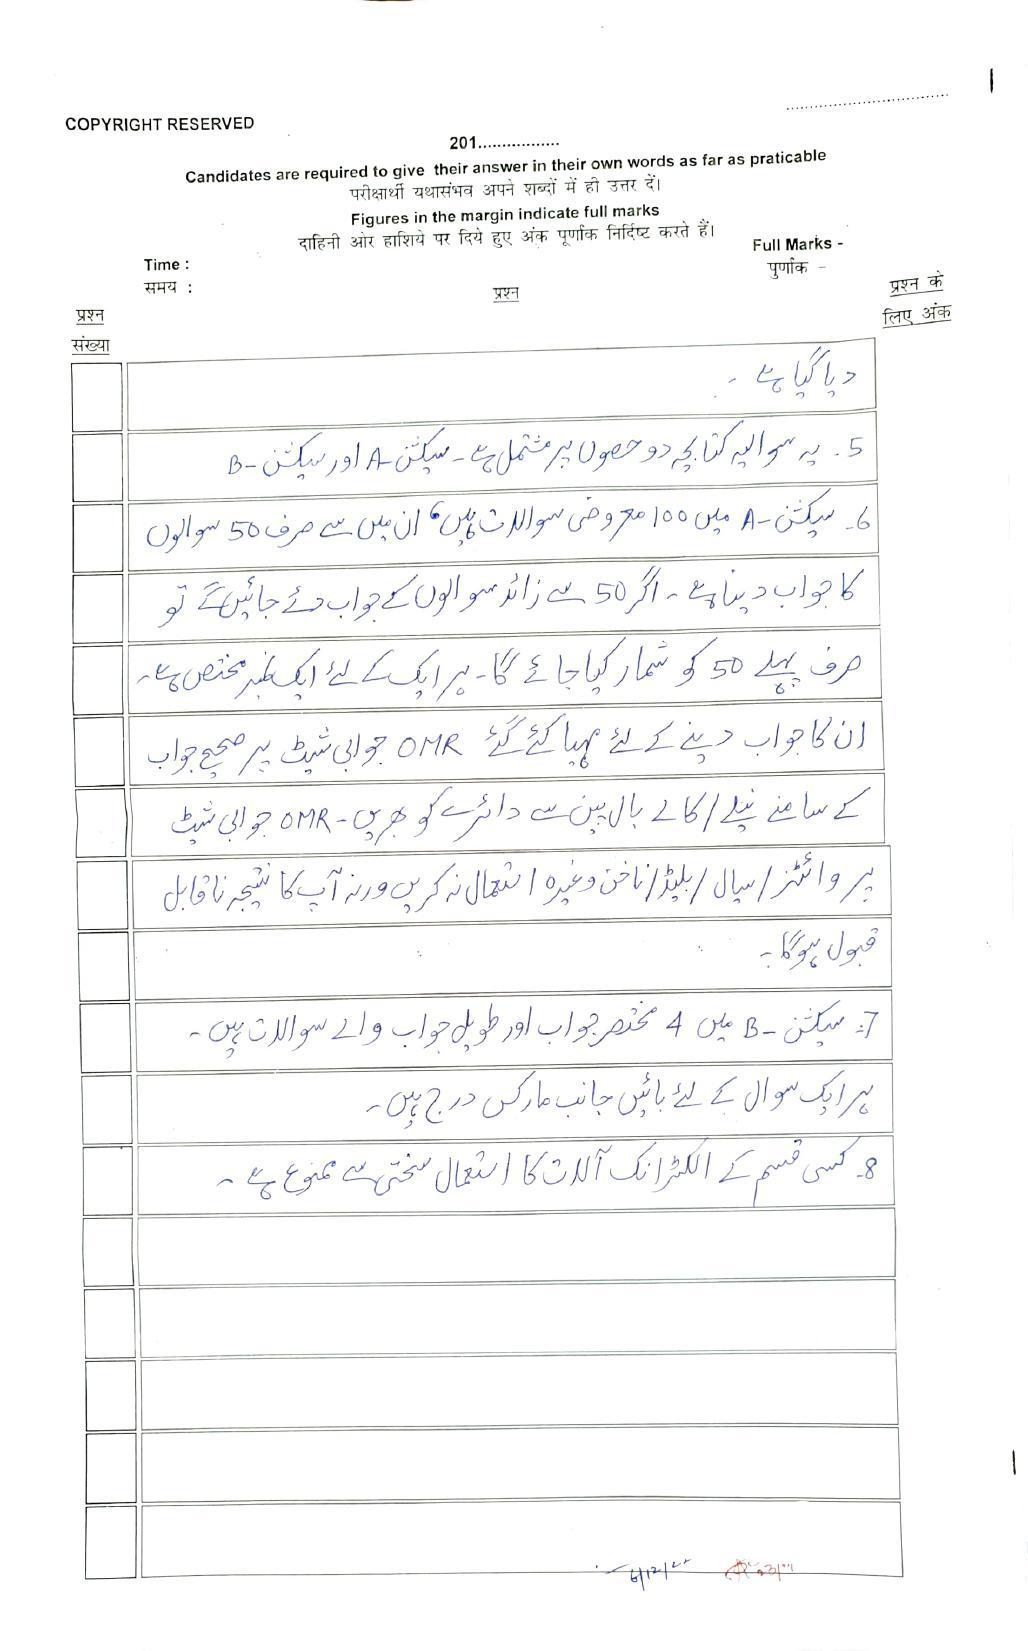 COPYRIGHT RESERVED
201.................
Candidates are required to give their answer in their own words as far as praticable
परीक्षार्थी यथासंभव अपने शब्दों में ही उत्तर दें।
Figures in the margin indicate full marks
दाहिनी ओर हाशिये पर दिये हुए अंक पूर्णांक निर्दिष्ट करते हैं।
Time :
Full Marks -
समय :
पुर्णांक -
प्रश्न
प्रश्न के
लिए अंक
प्रश्न
संख्या
دیا گیا ہے ۔
5. یہ سوالیہ کتابچہ دو حصوں پر مشتمل ہے ۔ سیکشن-A اور سیکشن-B
6۔ سیکشن-A میں 100 معروضی سوالات ہیں، ان میں سے صرف 50 سوالوں
کا جواب دینا ہے ۔ اگر 50 سے زائد سوالوں کے جواب دئے جائیں گے تو
صرف پہلے 50 کو شمار کیا جائے گا ۔ ہر ایک کے لئے ایک نمبر مختص ہے ۔
ان کا جواب دینے کے لئے مہیا کئے گئے OMR جوابی شیٹ پر صحیح جواب
کے سامنے نیلے / کالے بال پین سے دائرے کو بھریں ۔ OMR جوابی شیٹ
پر وائٹنر / سیال / بلیڈ / ناخن وغیرہ استعمال نہ کریں ورنہ آپ کا نتیجہ ناقابل
قبول ہوگا ۔
7. سیکشن-B میں 4 مختصر جواب اور طویل جواب والے سوالات ہیں ۔
ہر ایک سوال کے لئے بائیں جانب مارکس درج ہیں ۔
8۔ کسی قسم کے الکٹرانک آلات کا استعمال سختی سے ممنوع ہے ۔